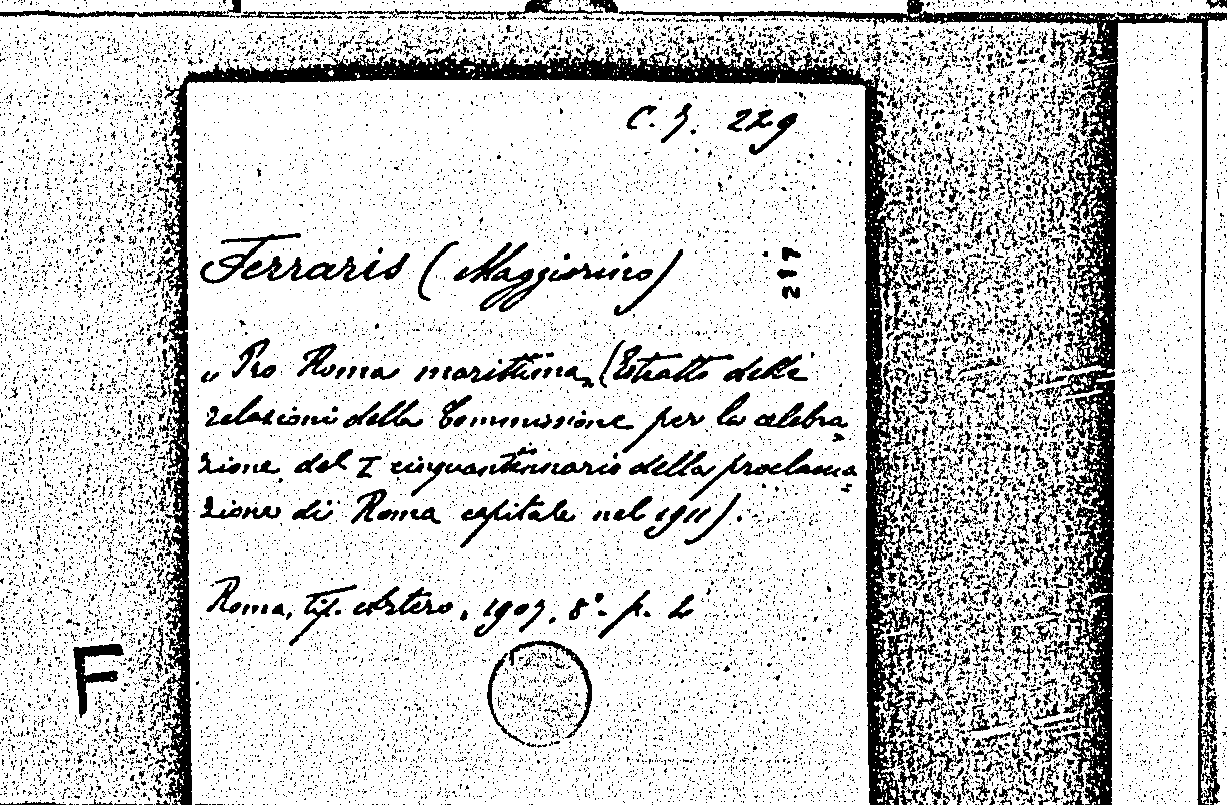 C. 9. 229
Ferraris (Maggiorino)
217
„Pro Roma marittima„ (Estratto delle
relazioni della Commissione per la celebra
zione del I cinquantennario della proclama
zione di Roma capitale nel 1911).
Roma, tip. Artero, 1907, 8°. p. 2
F